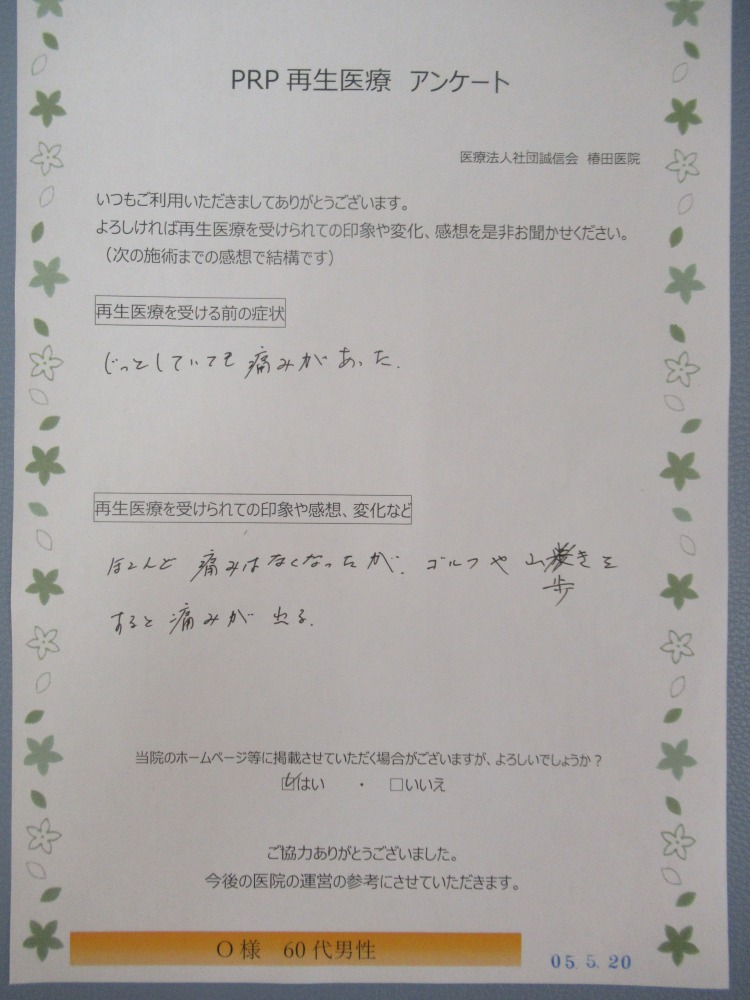 PRP 再生医療 アンケート
医療法人社団誠信会 椿田医院
いつもご利用いただきましてありがとうございます。
よろしければ再生医療を受けられての印象や変化、感想を是非お聞かせください。
（次の施術までの感想で結構です）
再生医療を受ける前の症状
じっとしていても痛みがあった.
再生医療を受けられての印象や感想、変化など
ほとんど痛みはなくなったが、ゴルフや山歩きを
すると痛みが出る.
当院のホームページ等に掲載させていただく場合がございますが、よろしいでしょうか？
☑はい ・ □いいえ
ご協力ありがとうございました。
今後の医院の運営の参考にさせていただきます。
O様 60代男性
05. 5. 20